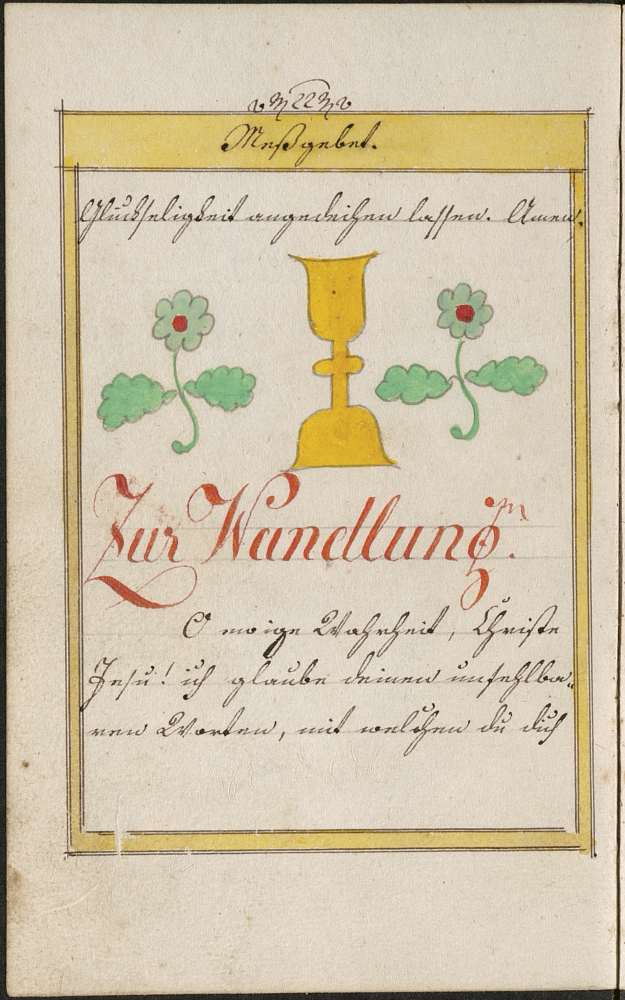 22
Meßgebet.
Glückseligkeit angedeihen lassen. Amen.
Zur Wandlung.
O ewige Wahrheit, Christe
Jesu! ich glaube deinen unfehlba⸗
ren Worten, mit welchen du dich